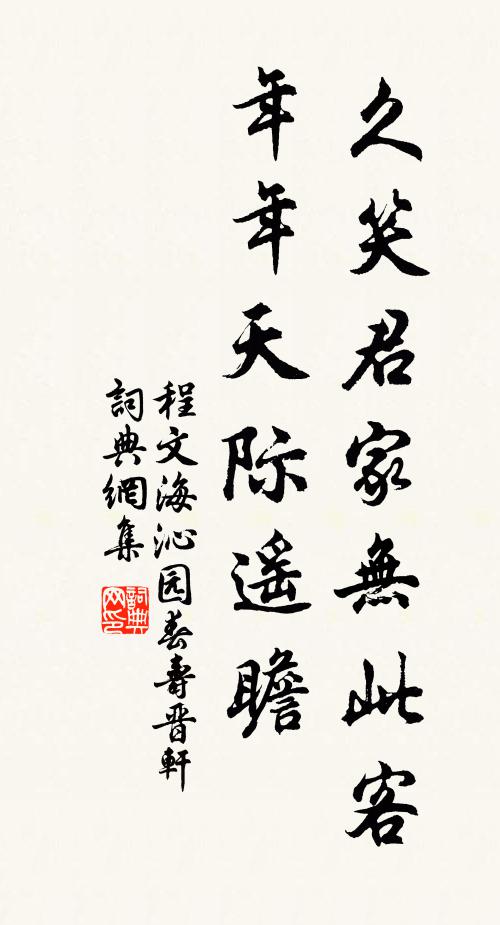 久笑君家無此客
年年天际遥瞻
程文海沁园春壽晋軒
詞典網集
詞典网印